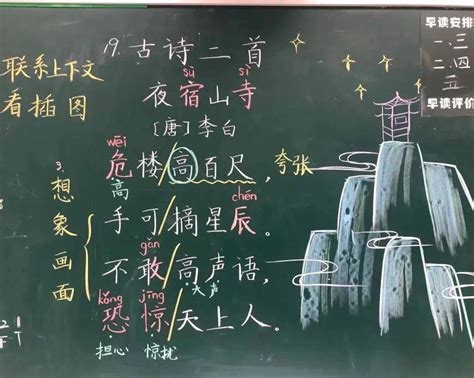 19.古诗二首
联系上下文
看插图
sù sì
夜宿山寺
[唐]李白
wēi
危楼/高百尺,
高
夸张
chén
手可/摘星辰。
gǎn
不敢/高声语,
大声
kǒng jīng
恐惊/天上人。
担心 惊扰
3.
想象画面
早读安排
一.三
二.四
五
早读评价